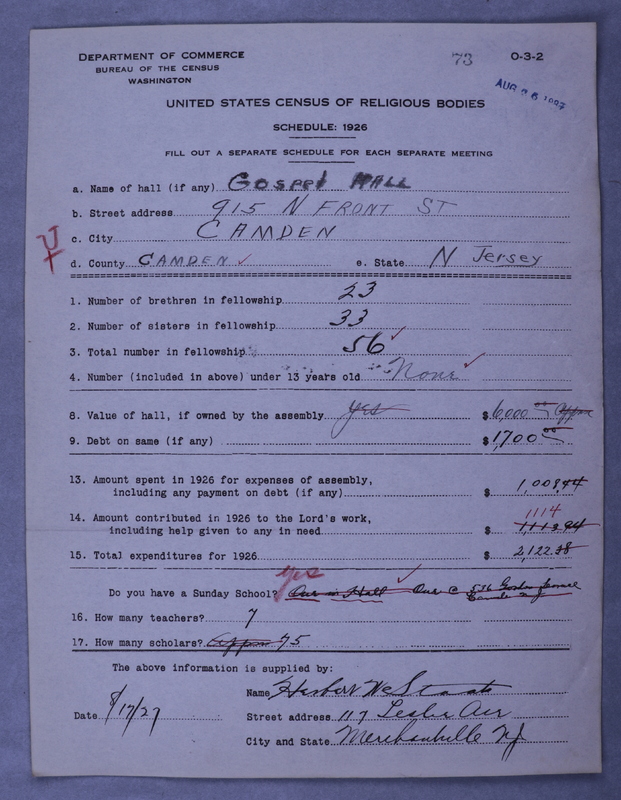 DEPARTMENT OF COMMERCE
BUREAU OF THE CENSUS
WASHINGTON
73
O-3-2
AUG 26 1927
UNITED STATES CENSUS OF RELIGIOUS BODIES
SCHEDULE: 1926
FILL OUT A SEPARATE SCHEDULE FOR EACH SEPARATE MEETING
a. Name of hall (if any) GOSPEL HALL
b. Street address 915 N FRONT ST
c. City CAMDEN
d. County CAMDEN ✓ e. State N Jersey
1. Number of brethren in fellowship 23
2. Number of sisters in fellowship 33
3. Total number in fellowship 56 ✓
4. Number (included in above) under 13 years old None ✓
8. Value of hall, if owned by the assembly yes $ 6,000 00 Appx
9. Debt on same (if any) $ 1700 00
13. Amount spent in 1926 for expenses of assembly,
including any payment on debt (if any) $ 1,008.44
14. Amount contributed in 1926 to the Lord's work, 1114
including help given to any in need $ 1,113.94
15. Total expenditures for 1926 $ 2,122.38
yes
Do you have a Sunday School? One in Hall One @ 536
16. How many teachers? 7
17. How many scholars? Appx 75
The above information is supplied by:
Name Herbert W Staats
Date 8/17/27 Street address 117 Leslie Ave
City and State Merchantville NJ